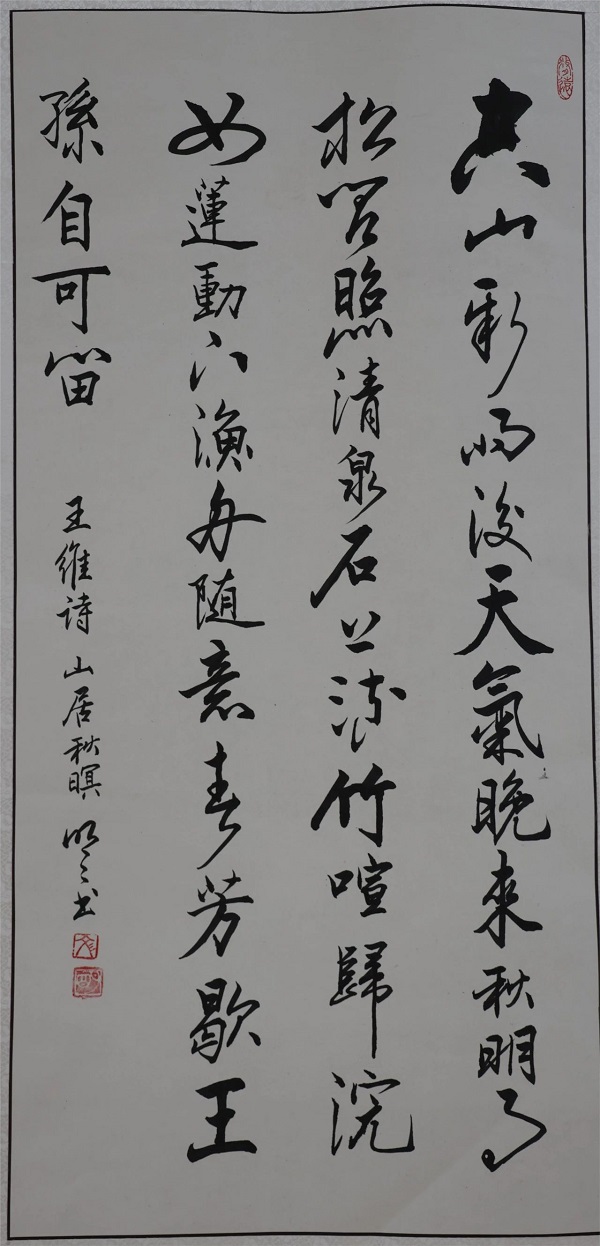 空山新雨後天氣晚來秋明月
松間照清泉石上流竹喧歸浣
女蓮動下漁舟随意春芳歇王
孫自可留
王維诗 山居秋暝 书